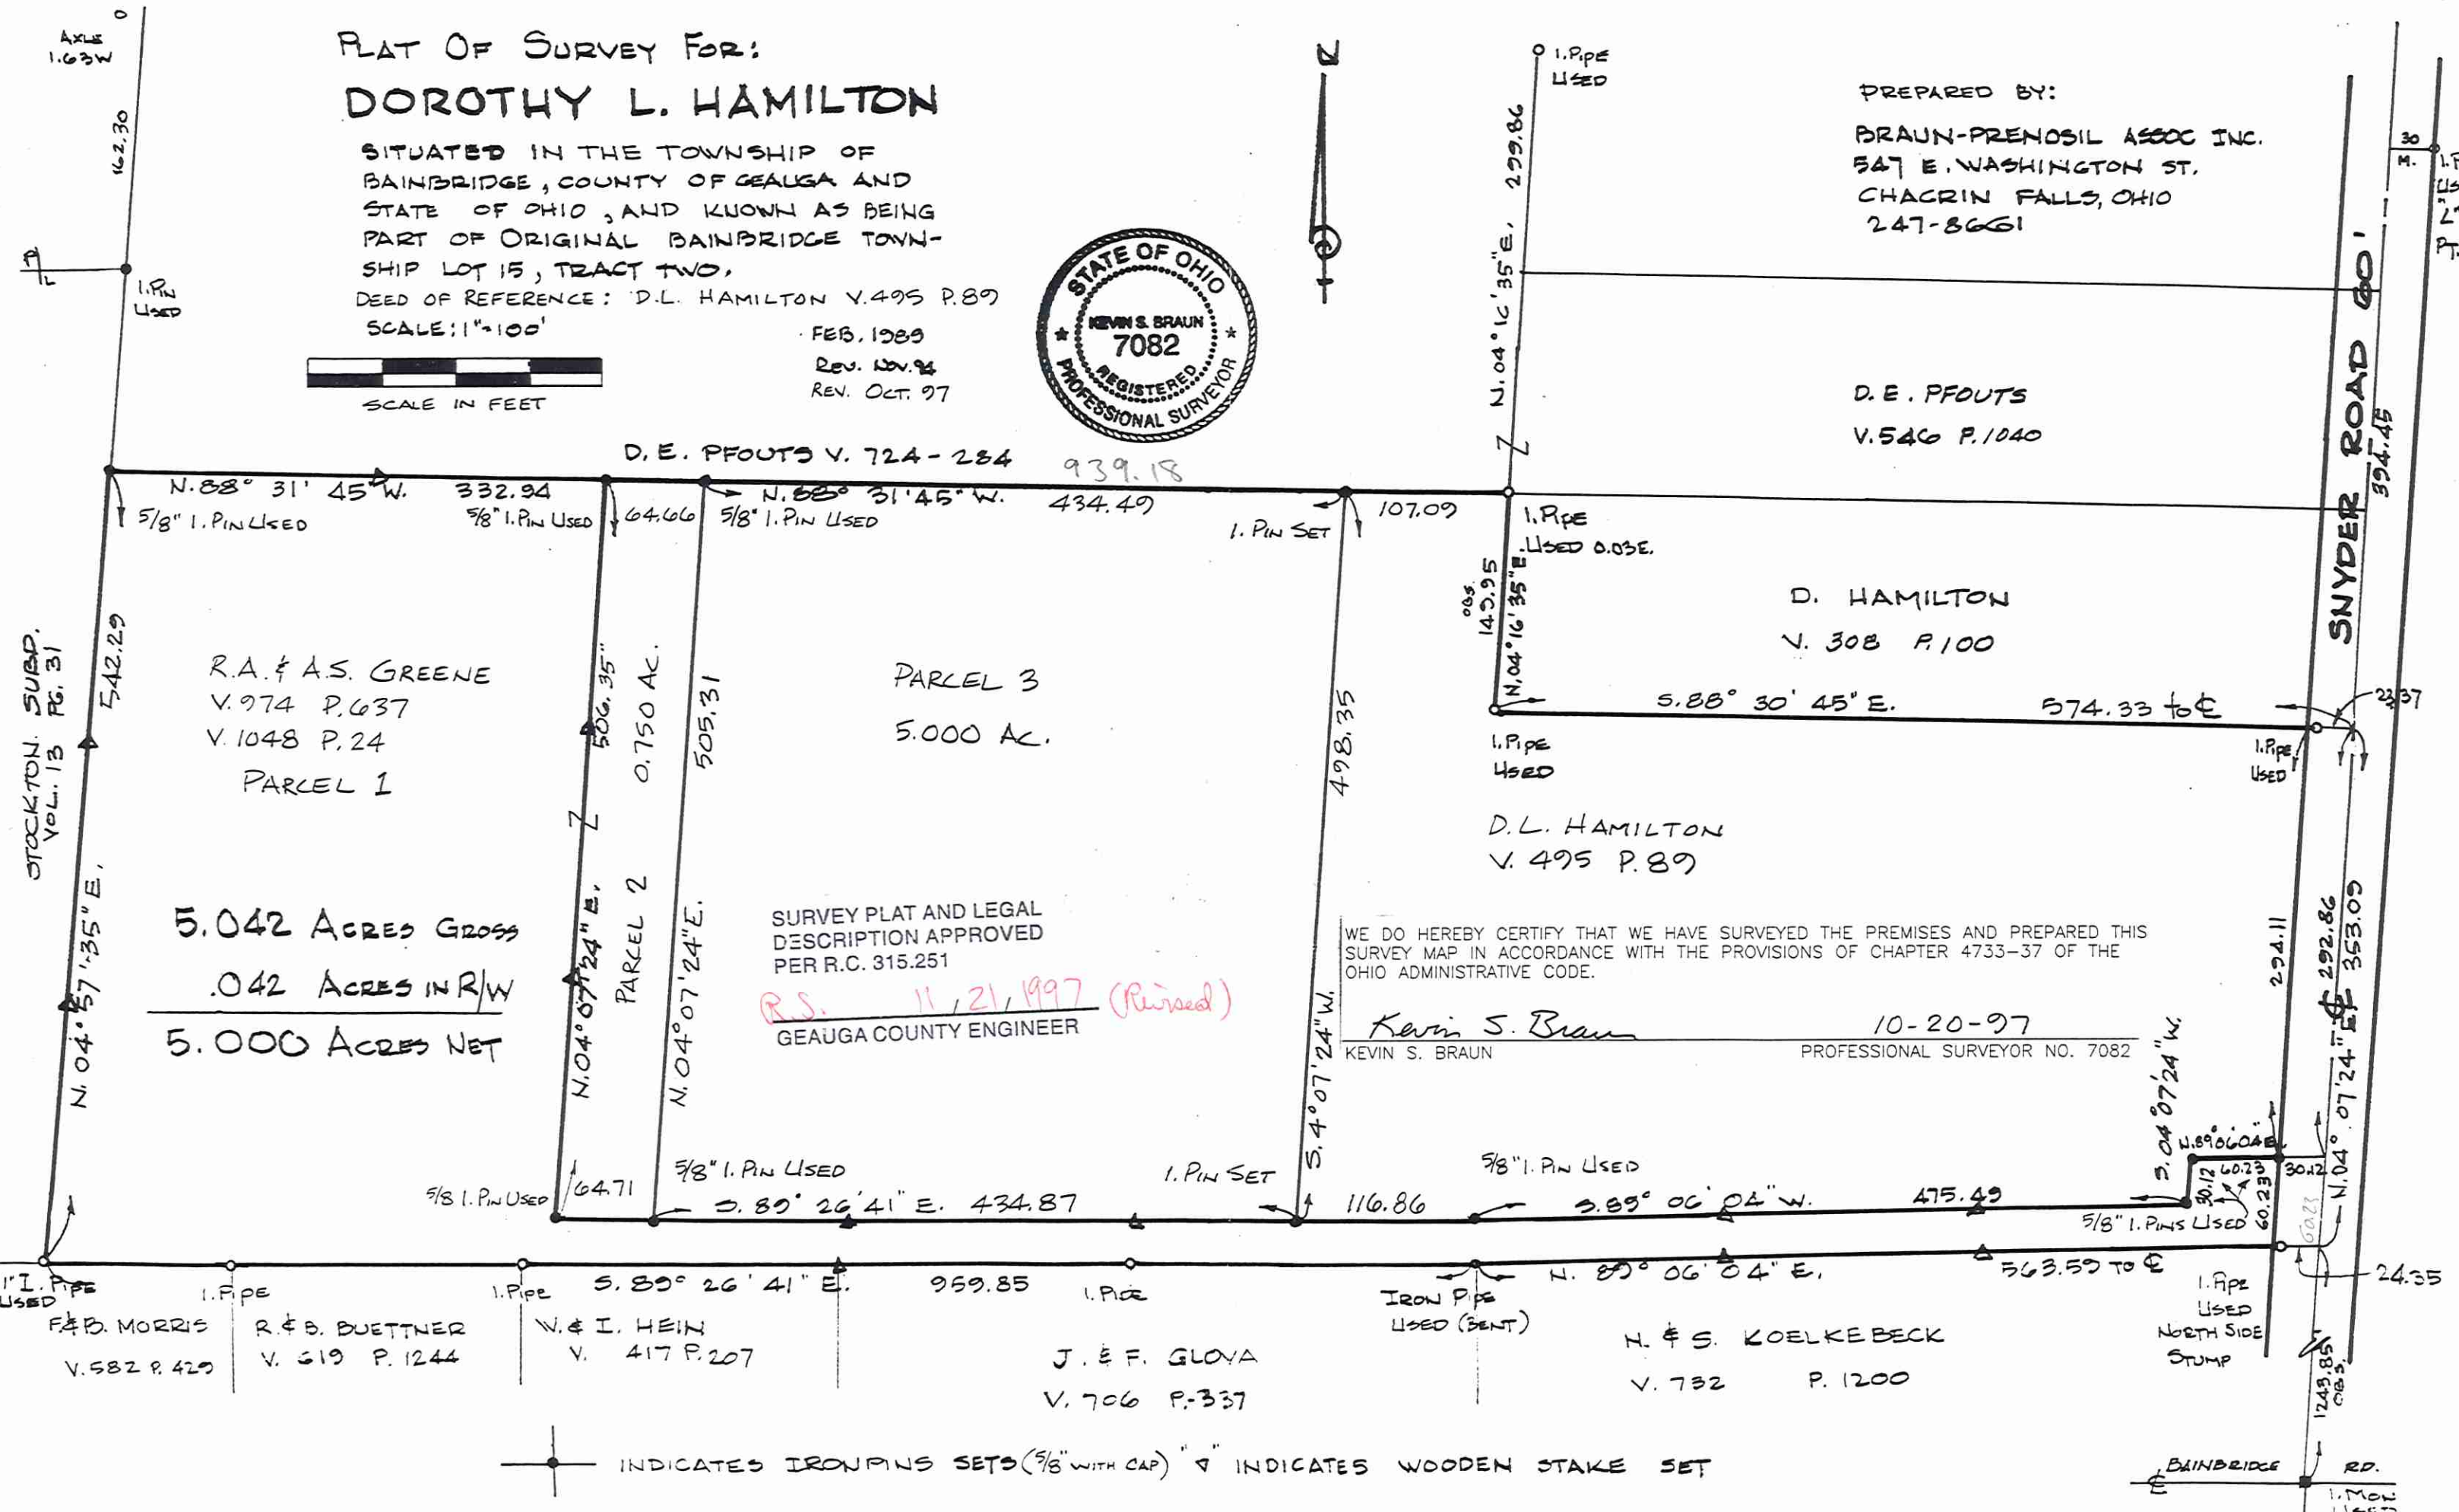 PLAT OF SURVEY FOR:
DOROTHY L. HAMILTON
SITUATED IN THE TOWNSHIP OF
BAINBRIDGE, COUNTY OF GEAUGA AND
STATE OF OHIO, AND KNOWN AS BEING
PART OF ORIGINAL BAINBRIDGE TOWN-
SHIP LOT 15, TRACT TWO.
DEED OF REFERENCE: D.L. HAMILTON V.495 P.89
SCALE: 1"=100'
FEB. 1989
REV. NOV. 94
REV. OCT. 97
SCALE IN FEET
AXLE
1.63W
162.30
P/L
I. PIN
USED
STATE OF OHIO
KEVIN S. BRAUN
7082
REGISTERED
PROFESSIONAL SURVEYOR
N
I. PIPE
USED
N.04°16'35"E. 299.86
PREPARED BY:
BRAUN-PRENOSIL ASSOC INC.
547 E. WASHINGTON ST.
CHAGRIN FALLS, OHIO
247-8661
30
M.
SNYDER ROAD 60'
394.45
D.E. PFOUTS
V.546 P.1040
D.E. PFOUTS V. 724-284
939.18
N.88° 31' 45"W. 332.94
5/8" I. PIN USED
5/8" I. PIN USED
64.66
N.88° 31'45"W. 434.49
5/8" I. PIN USED
I. PIN SET
107.09
I. PIPE
USED 0.03E.
OBS.
149.95
N.04°16'35"E
D. HAMILTON
V. 308 P.100
S.88° 30' 45"E. 574.33 to ℄
23.37
I. PIPE
USED
I. PIPE
USED
STOCKTON SUBD.
VOL. 13 PG. 31
542.29
N.04°57'35"E.
R.A. & A.S. GREENE
V.974 P.637
V.1048 P.24
PARCEL 1
5.042 ACRES GROSS
.042 ACRES IN R/W
5.000 ACRES NET
506.35"
N.04°07'24"E.
PARCEL 2 0.750 AC.
505.31
N.04°07'24"E.
PARCEL 3
5.000 AC.
498.35
S.4°07'24"W.
SURVEY PLAT AND LEGAL
DESCRIPTION APPROVED
PER R.C. 315.251
R.S. 11/21/1997 (Revised)
GEAUGA COUNTY ENGINEER
D.L. HAMILTON
V. 495 P.89
WE DO HEREBY CERTIFY THAT WE HAVE SURVEYED THE PREMISES AND PREPARED THIS
SURVEY MAP IN ACCORDANCE WITH THE PROVISIONS OF CHAPTER 4733-37 OF THE
OHIO ADMINISTRATIVE CODE.
Kevin S. Braun 10-20-97
KEVIN S. BRAUN PROFESSIONAL SURVEYOR NO. 7082
294.11
℄ 292.86
N.04°07'24"E 353.09
S.04°07'24"W.
N.89°06'04"E.
60.23
30.12
30.12
60.23
60.23
5/8" I. PINS USED
5/8 I. PIN USED
64.71
5/8" I. PIN USED
S.89° 26'41"E. 434.87
I. PIN SET
116.86
5/8" I. PIN USED
S.89° 06' 04"W. 475.49
1" I. PIPE
USED
I. PIPE
I. PIPE
S.89° 26' 41"E. 959.85
I. PIPE
IRON PIPE
USED (BENT)
N. 89° 06' 04"E. 563.59 TO ℄
24.35
I. PIPE
USED
NORTH SIDE
STUMP
F.&B. MORRIS
V.582 P.429
R.& B. BUETTNER
V. 619 P. 1244
W.& I. HEIN
V. 417 P.207
J. & F. GLOVA
V. 706 P.-337
N. & S. KOELKEBECK
V. 732 P. 1200
1243.85
OBS.
INDICATES IRON PINS SETS (5/8" WITH CAP) INDICATES WOODEN STAKE SET
℄ BAINBRIDGE RD.
I. MON
USED